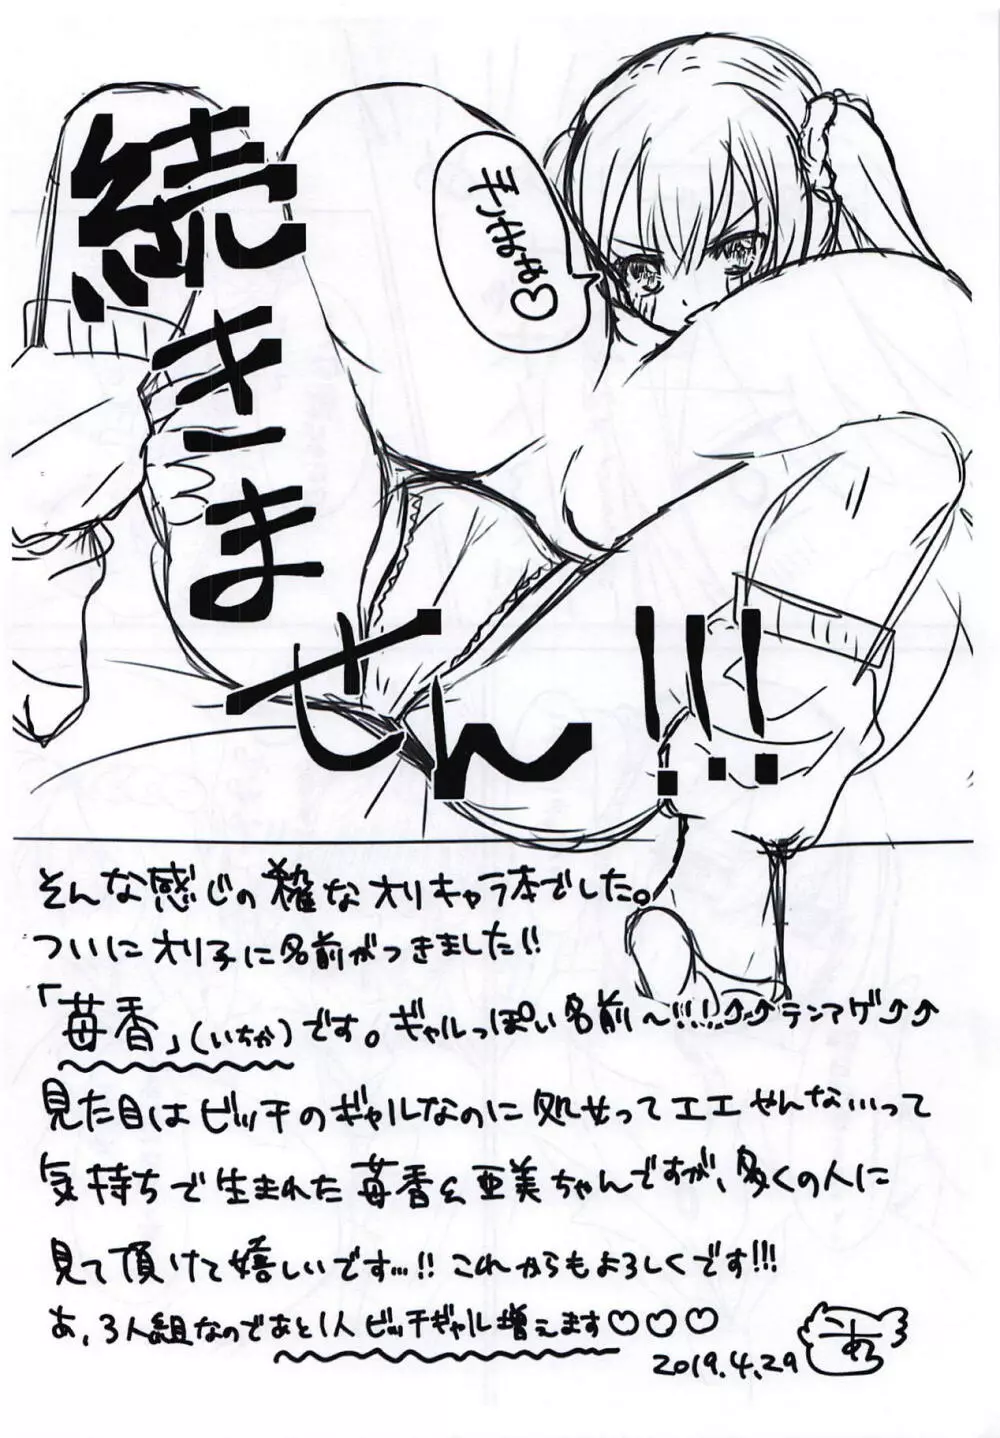 続きません!!!
そんな感じの雑なオリキャラ本でした。
ついにオリ子に名前がつきました!!
「苺香」(いちか)です。ギャルっぽい名前〜!!!⤴⤴テンアゲ⤴⤴
見た目はビッチのギャルなのに処女ってエエやんない…って
気持ちで生まれた苺香&亜美ちゃんですが、多くの人に
見て頂けて嬉しいです…!! これからもよろしくです!!!
あ、3人組なのであと1人ビッチギャル増えます♡♡♡
2019.4.29